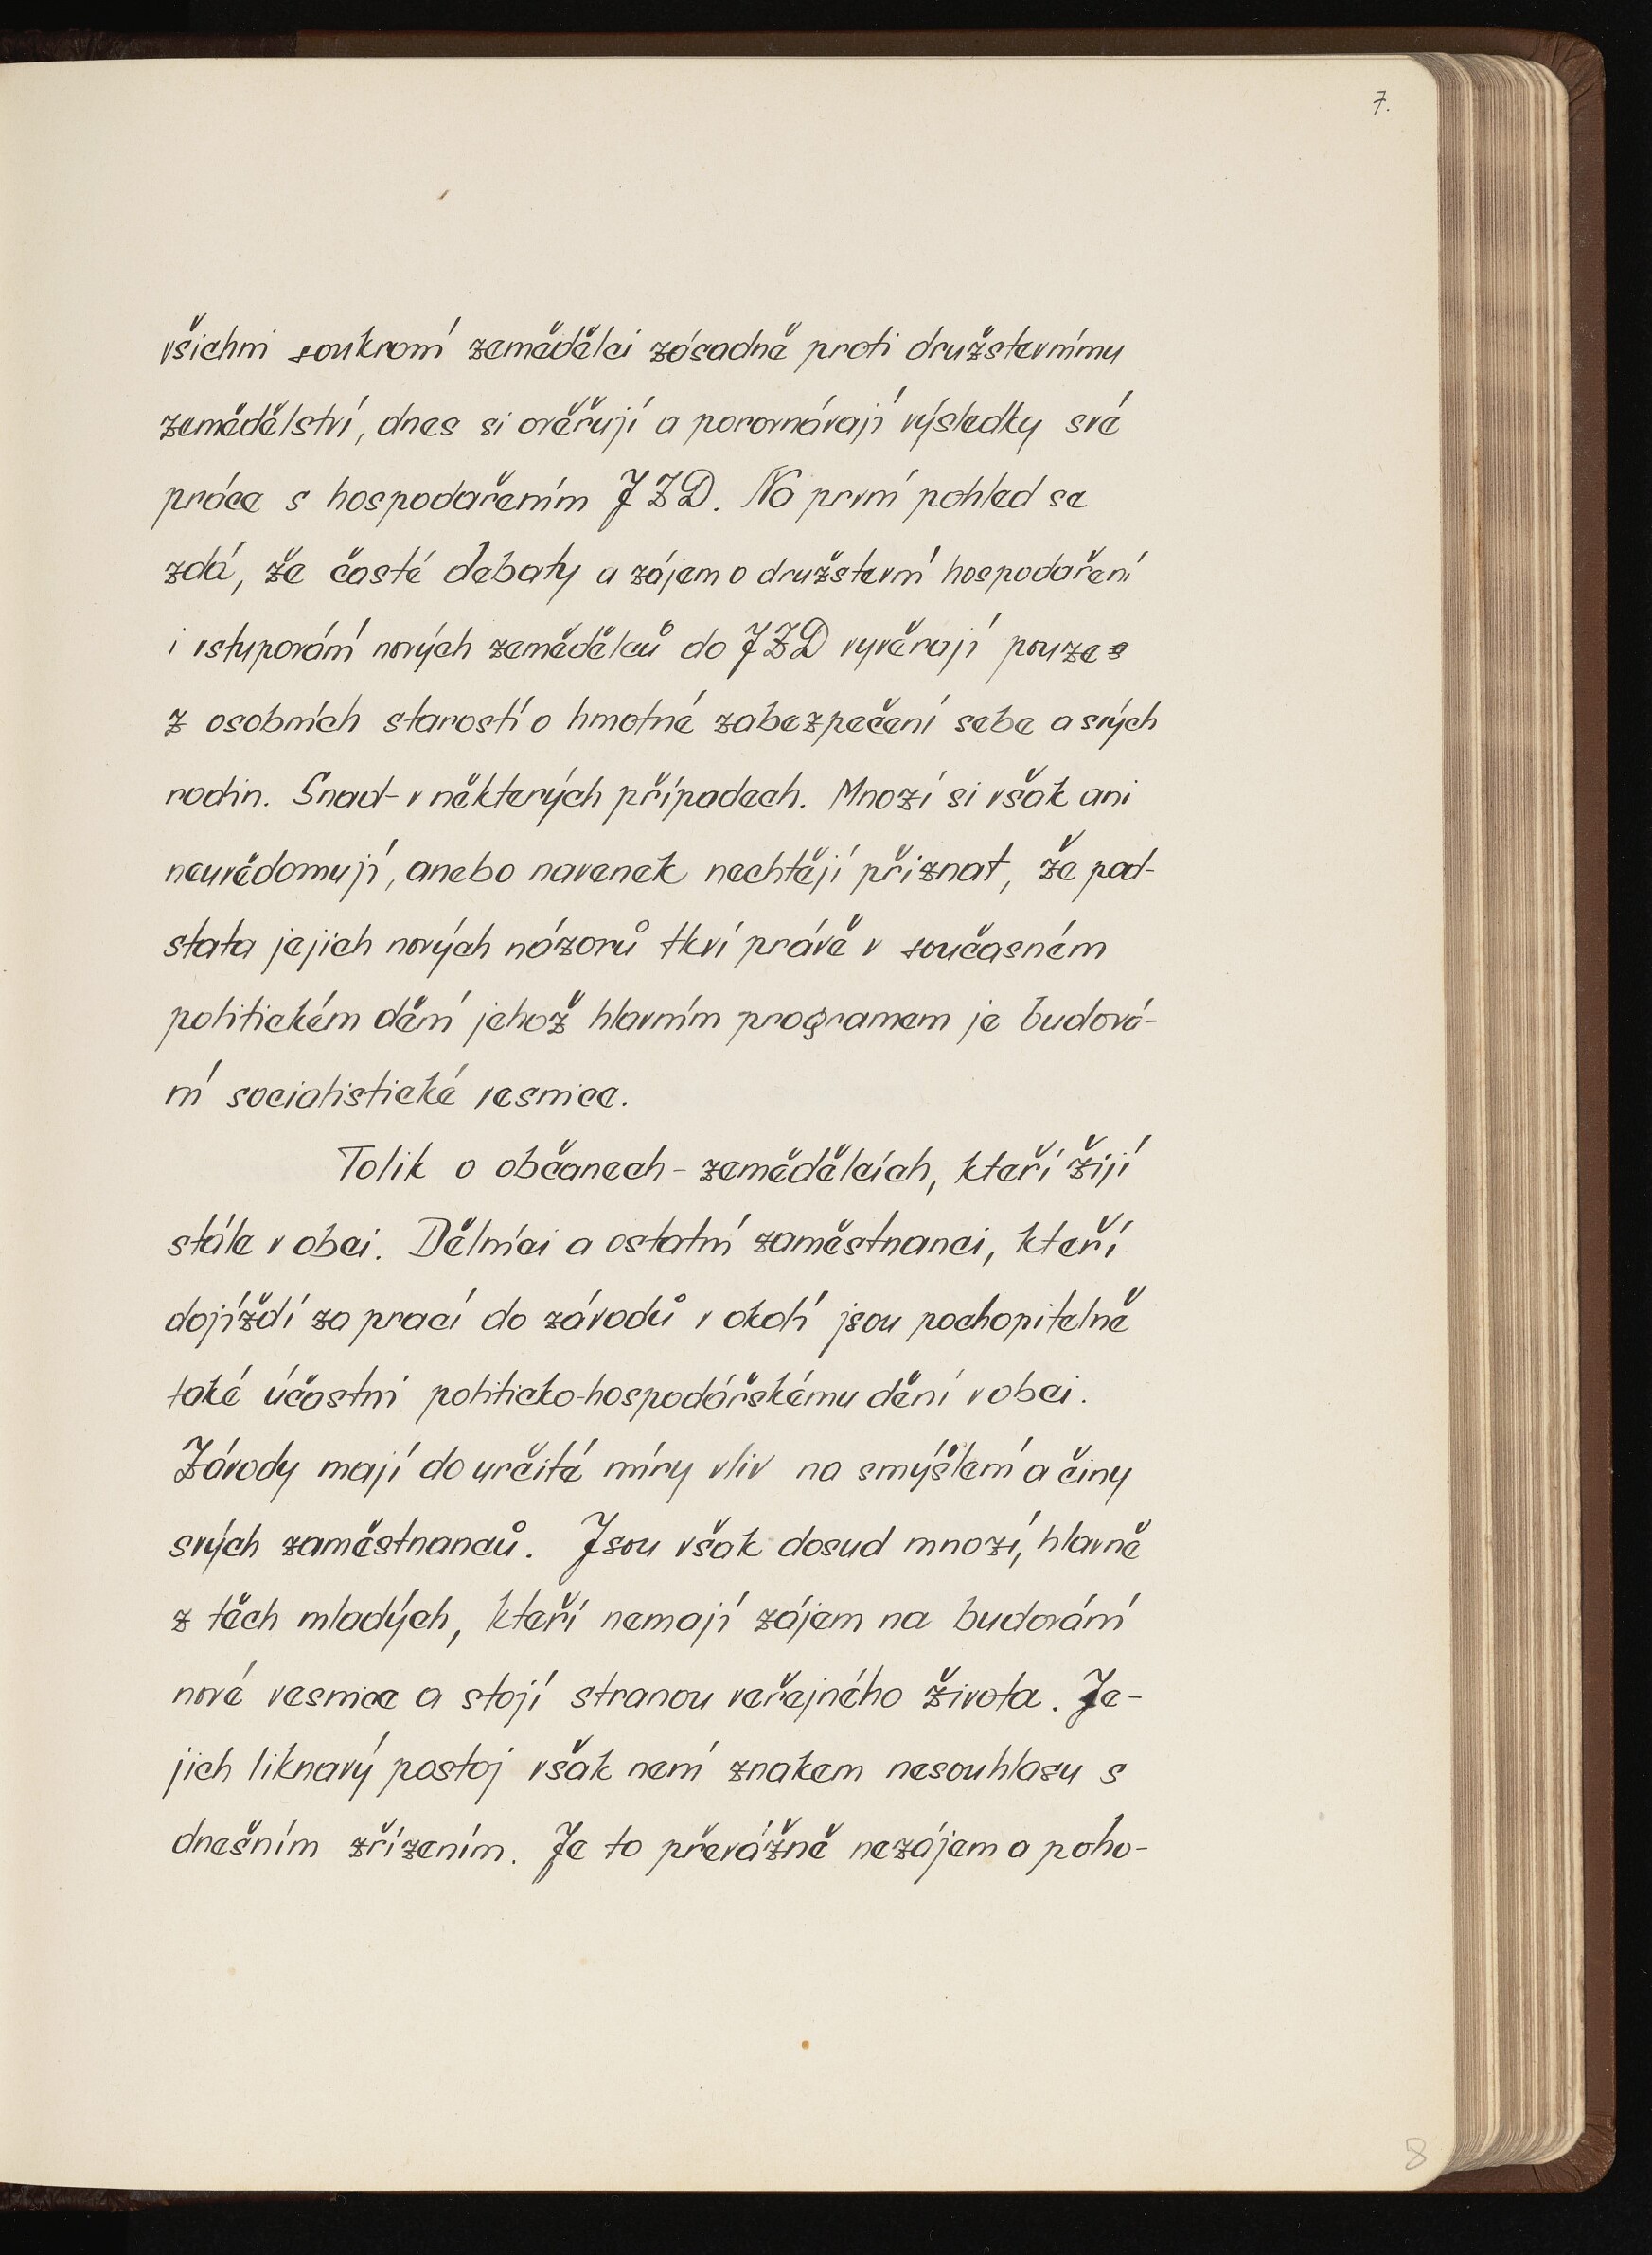 7.
všichni soukromí zemědělci zásadně proti družstevnímu
zemědělství, dnes si ověřují a porovnávají výsledky své
práce s hospodařením JZD. Na první pohled se
zdá, že časté debaty a zájem o družstevní hospodaření
i vstupování nových zemědělců do JZD vyvěrají pouze
z osobních starostí o hmotné zabezpečení sebe a svých
rodin. Snad - v některých případech. Mnozí si však ani
neuvědomují, anebo navenek nechtějí přiznat, že pod-
stata jejich nových názorů tkví právě v současném
politickém dění jehož hlavním programem je budová-
ní socialistické vesnice.
Tolik o občanech - zemědělcích, kteří žijí
stále v obci. Dělníci a ostatní zaměstnanci, kteří
dojíždí za prací do závodů v okolí jsou pochopitelně
také účastni politicko-hospodářskému dění v obci.
Závody mají do určité míry vliv na smýšlení a činy
svých zaměstnanců. Jsou však dosud mnozí, hlavně
z těch mladých, kteří nemají zájem na budování
nové vesnice a stojí stranou veřejného života. Je-
jich liknavý postoj však není znakem nesouhlasu s
dnešním zřízením. Je to převážně nezájem a poho-
8